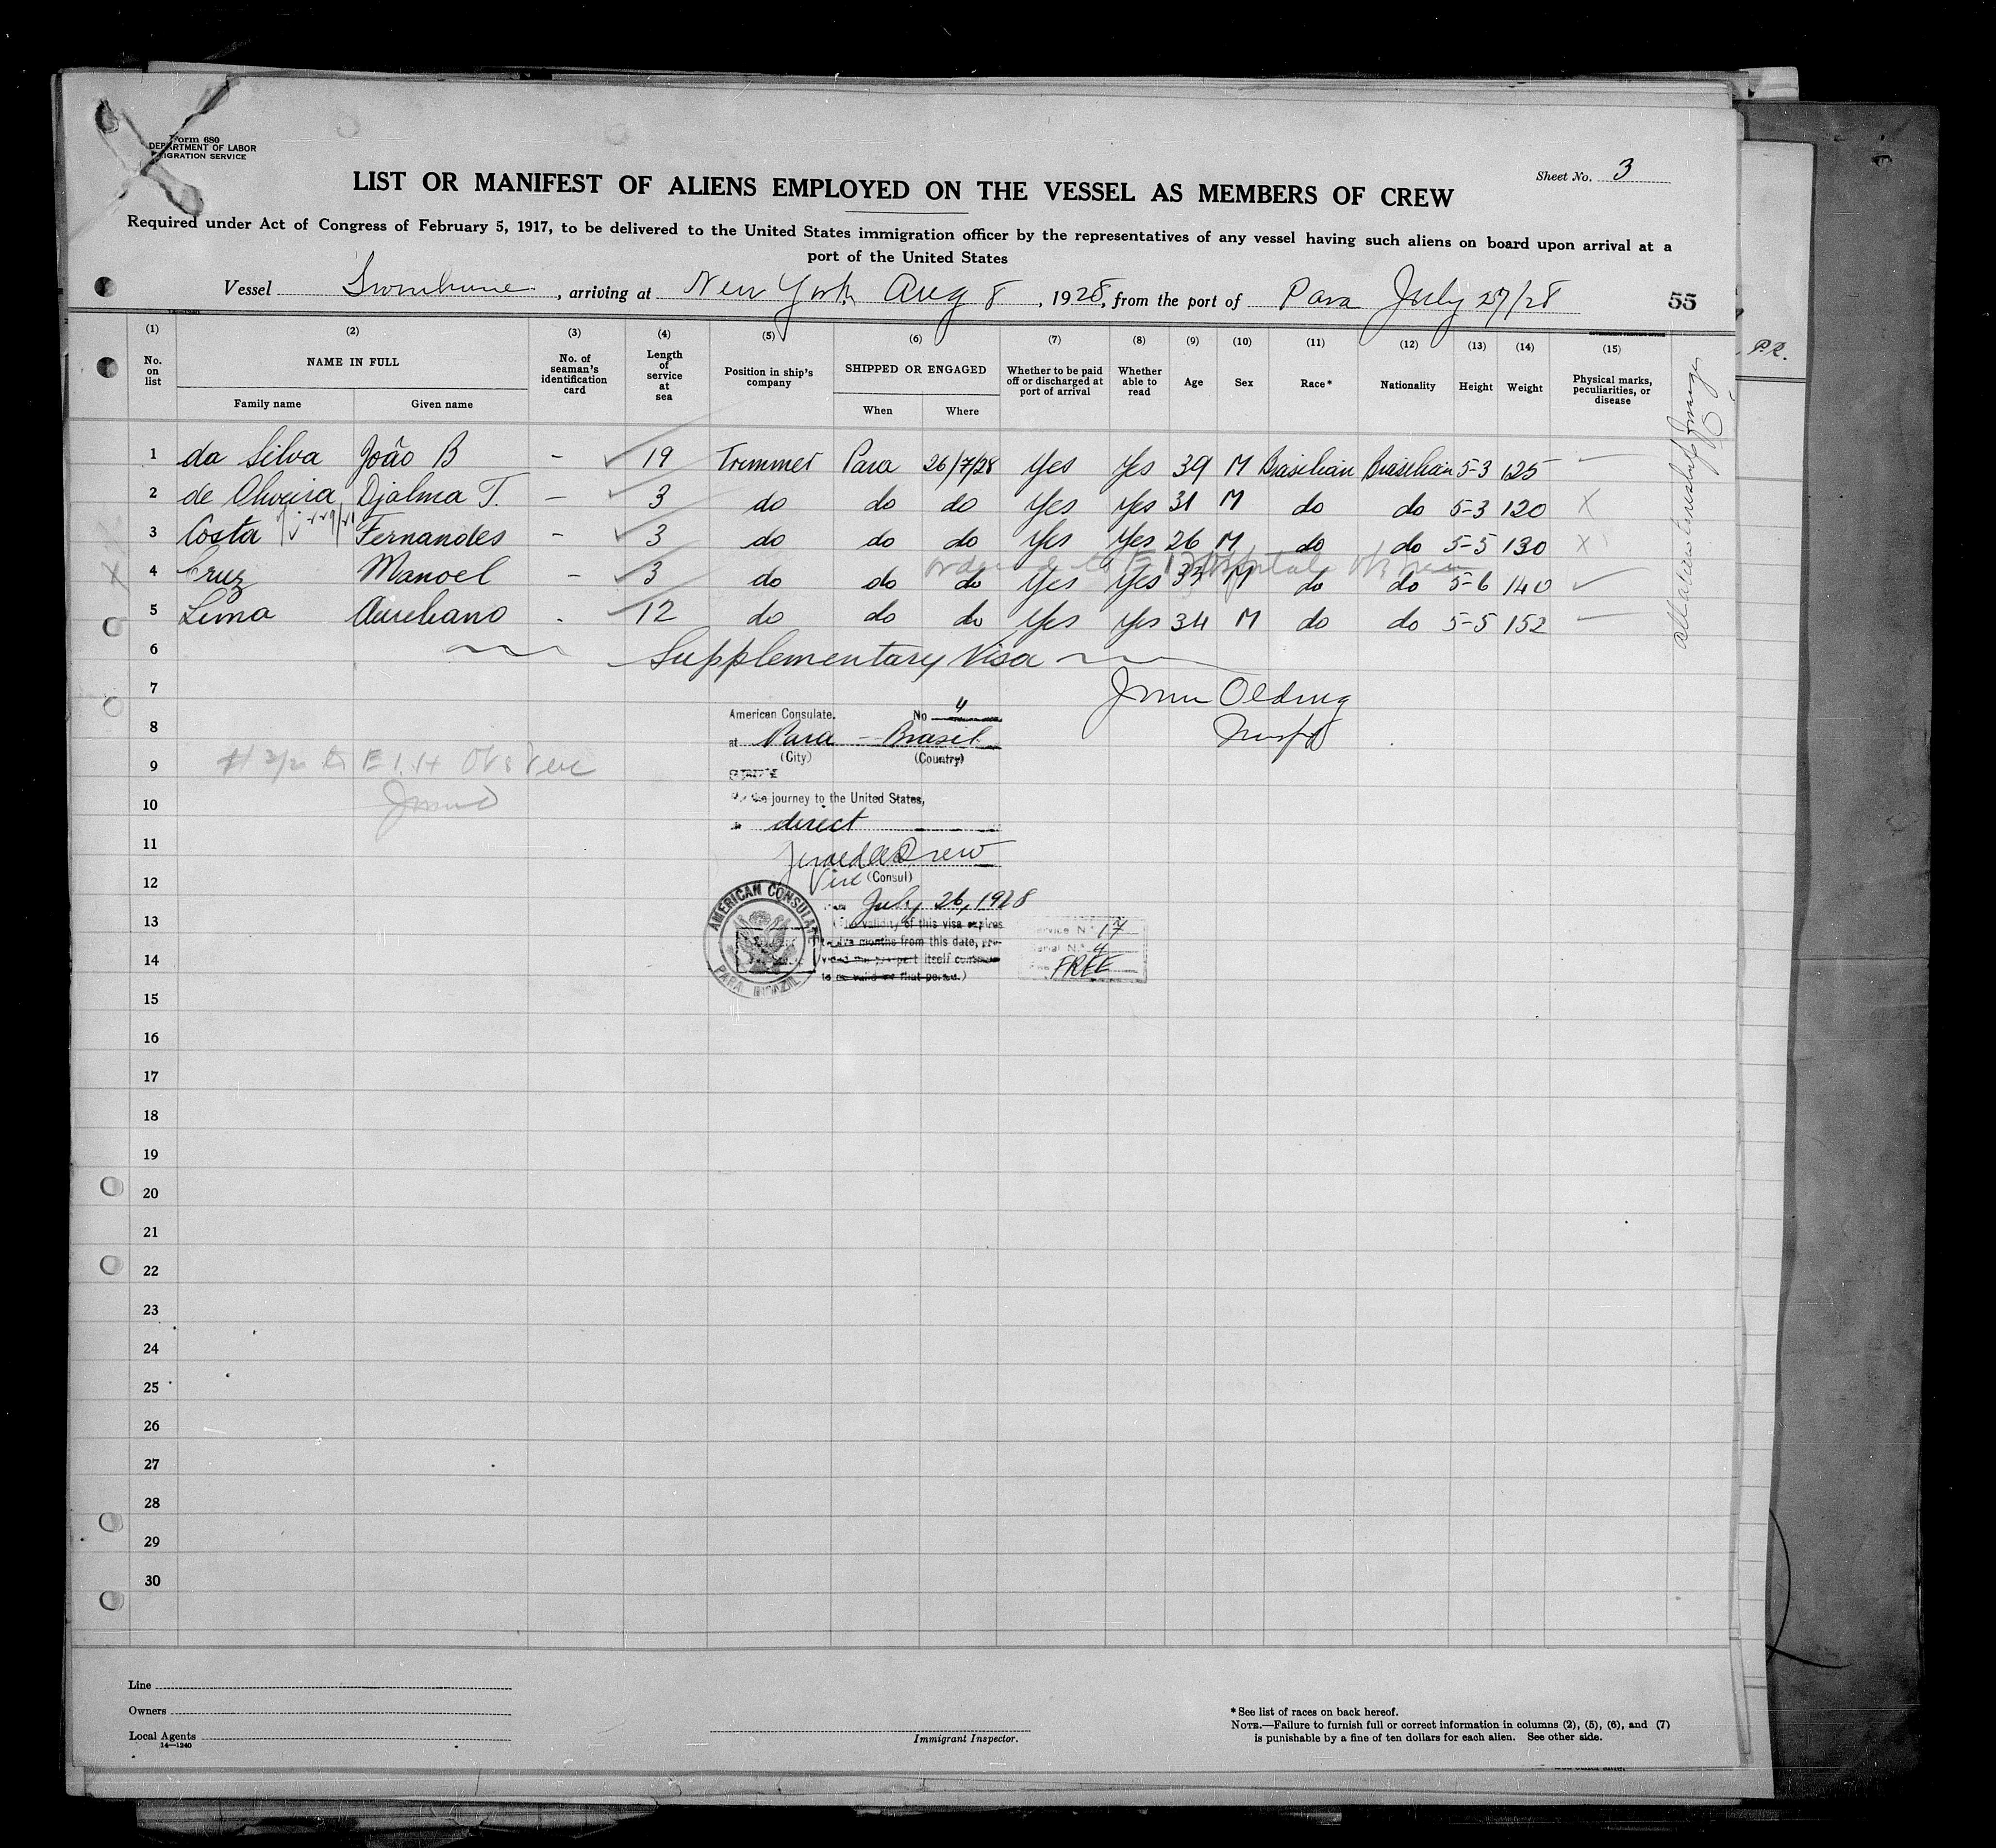 Form 680
DEPARTMENT OF LABOR
IMMIGRATION SERVICE
Sheet No. 3
LIST OR MANIFEST OF ALIENS EMPLOYED ON THE VESSEL AS MEMBERS OF CREW
Required under Act of Congress of February 5, 1917, to be delivered to the United States immigration officer by the representatives of any vessel having such aliens on board upon arrival at a
port of the United States
Vessel , arriving at New York Aug 8, 1928, from the port of Para July 27/28
55
(1) (2) (3) (4) (5) (6) (7) (8) (9) (10) (11) (12) (13) (14) (15)
No. on list NAME IN FULL No. of seaman's identification card Length of service at sea Position in ship's company SHIPPED OR ENGAGED Whether to be paid off or discharged at port of arrival Whether able to read Age Sex Race* Nationality Height Weight Physical marks, peculiarities, or disease
Family name Given name When Where
P.R.
1 da Silva João B – 19 Trimmer Para 26/7/28 Yes Yes 39 M Brasilian Brasilian 5-3 125
2 de Oliveira Djalma T. – 3 do do do Yes Yes 31 M do do 5-3 120 X
3 Costa Fernandes – 3 do do do Yes Yes 26 M do do 5-5 130 X
4 Cruz Manoel – 3 do do do Yes Yes 33 M do do 5-6 140
5 Lima Aureliano - 12 do do do Yes Yes 34 M do do 5-5 152
6 Supplementary Visa
7
American Consulate. No 4
8
at Para – Brasil
(City) (Country)
9
10
the journey to the United States,
direct
11
12
Vice (Consul)
July 26, 1928
AMERICAN CONSULATE
PARA, BRAZIL
13
(The validity of this visa expires
twelve months from this date, pro-
14
vided the passport itself continues
to be valid for that period.)
Service No. 17
4
FREE
15
16
17
18
19
20
21
22
23
24
25
26
27
28
29
30
Line
Owners
Local Agents
14—1240
Immigrant Inspector.
* See list of races on back hereof.
NOTE.—Failure to furnish full or correct information in columns (2), (5), (6), and (7)
is punishable by a fine of ten dollars for each alien. See other side.